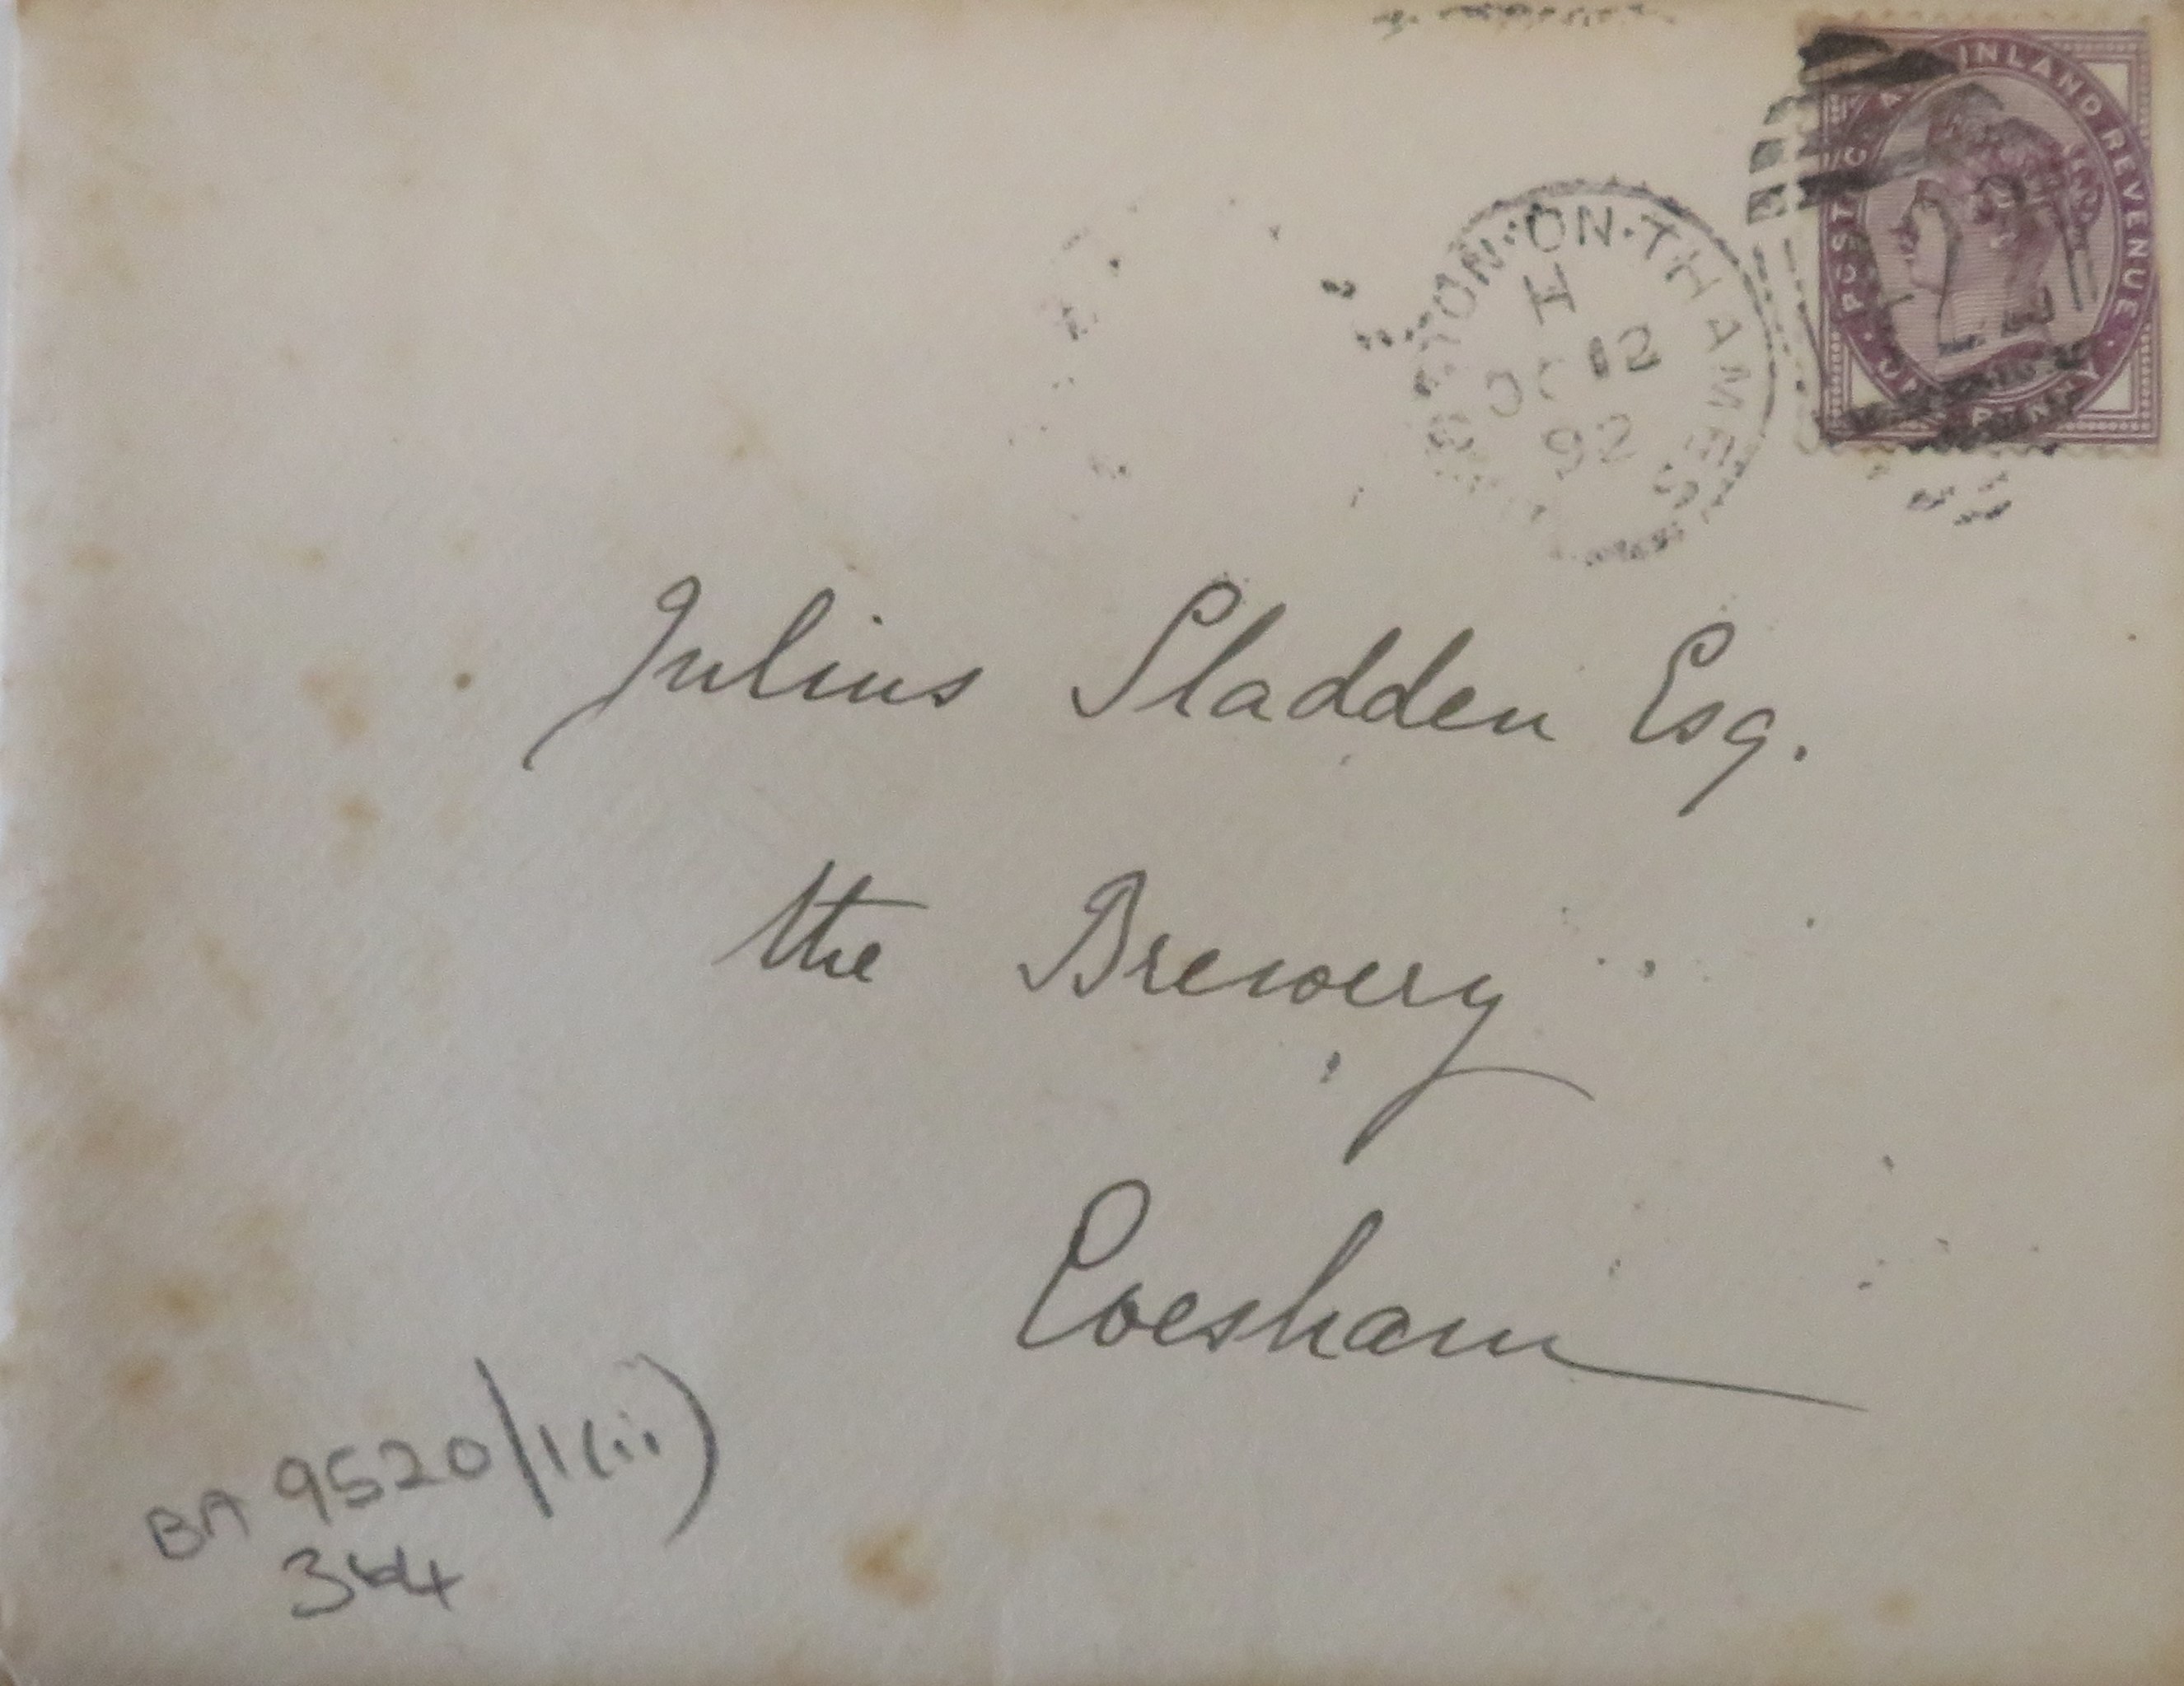 POSTAGE & INLAND REVENUE
ON·THAMES
H
OC 12
92
Julius Sladden Esq.
the Brewery
Evesham
BA 9520/1(ii)
344